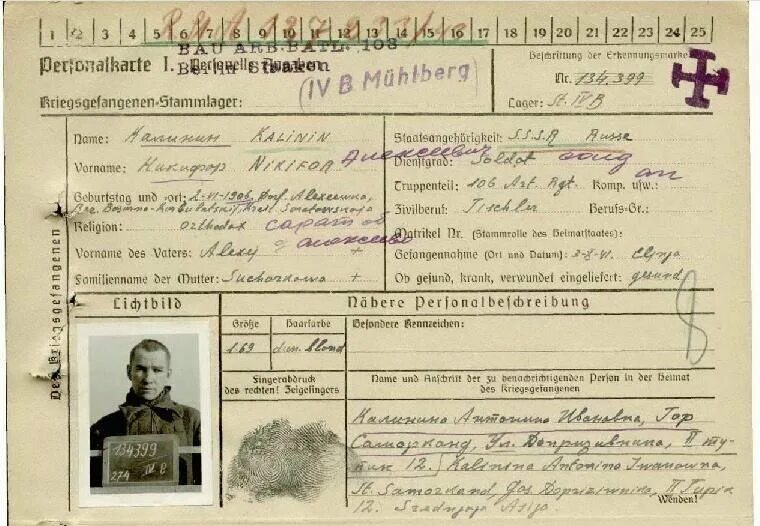 1 2 3 4 5 6 7 8 9 10 11 12 13 14 15 16 17 18 19 20 21 22 23 24 25
BAU ARB.BATL. 108
Berlin Staaken
Personalkarte I: Personelle Angaben
IV B Mühlberg
Kriegsgefangenen-Stammlager:
Beschriftung der Erkennungsmarke
Nr. 134.399
Lager: St. IV B
Des Kriegsgefangenen
Name: Калинин KALININ
Vorname: Никифор NIKIFOR Алексеевич
Geburtstag und -ort: 2-VI-1906, Dorf Alexeewka,
Religion: Orthodox
Vorname des Vaters: Alexej +
Familienname der Mutter: Suchorkowa +
Staatsangehörigkeit: S.S.S.R Russe
Dienstgrad: Soldat
Truppenteil: 106 Art. Rgt. Komp. usw.:
Zivilberuf: Tischler Berufs-Gr.:
Matrikel Nr. (Stammrolle des Heimatstaates):
Gefangennahme (Ort und Datum): Elnja
Ob gesund, krank, verwundet eingeliefert: gesund
Lichtbild
134399
274 IV B
Nähere Personalbeschreibung
Größe
169
Haarfarbe
dun. blond
Besondere Kennzeichen:
Fingerabdruck
des rechten! Zeigefingers
Name und Anschrift der zu benachrichtigenden Person in der Heimat
des Kriegsgefangenen
Калинина Антонина Ивановна, Гор
Самарканд, Ул. Допризивника, II ту
пик 12. Kalinina Antonina Iwanowna,
St. Samarkand Gos Dopriziwnika, II Tupik
12. Srednjaja Asija.
Wenden!